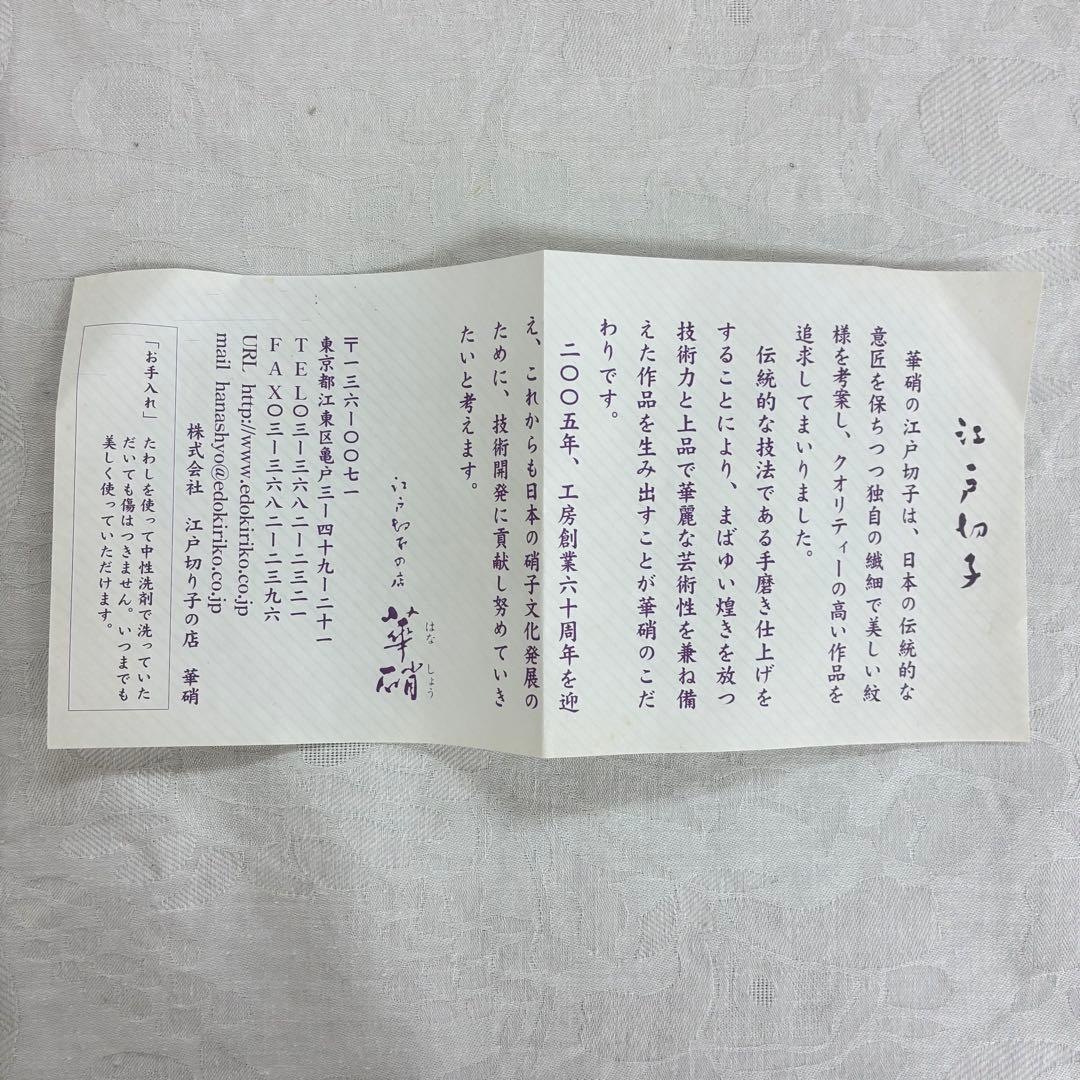 江戸切子
華硝の江戸切子は、日本の伝統的な
意匠を保ちつつ独自の繊細で美しい紋
様を考案し、クオリティーの高い作品を
追求してまいりました。
伝統的な技法である手磨き仕上げを
することにより、まばゆい煌きを放つ
技術力と上品で華麗な芸術性を兼ね備
えた作品を生み出すことが華硝のこだ
わりです。
二〇〇五年、工房創業六十周年を迎
え、これからも日本の硝子文化発展の
ために、技術開発に貢献し努めていき
たいと考えます。
江戸切子の店 華硝
はな しょう
〒一三六ー〇〇七一
東京都江東区亀戸三ー四十九ー二十一
TEL〇三ー三六八二ー二三二一
FAX〇三ー三六八二ー二三九六
URL http://www.edokiriko.co.jp
mail hanashyo@edokiriko.co.jp
株式会社 江戸切り子の店 華硝
「お手入れ」 たわしを使って中性洗剤で洗っていた
だいても傷はつきません。いつまでも
美しく使っていただけます。